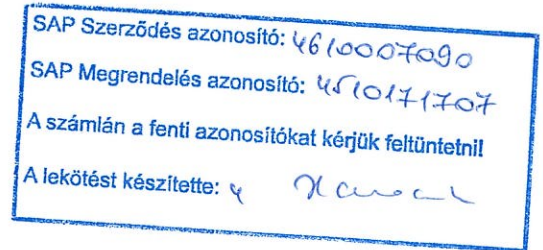 SAP Szerződés azonosító: 4610007090
SAP Megrendelés azonosító: 4510171707
A számlán a fenti azonosítókat kérjük feltüntetni!
A lekötést készítette: